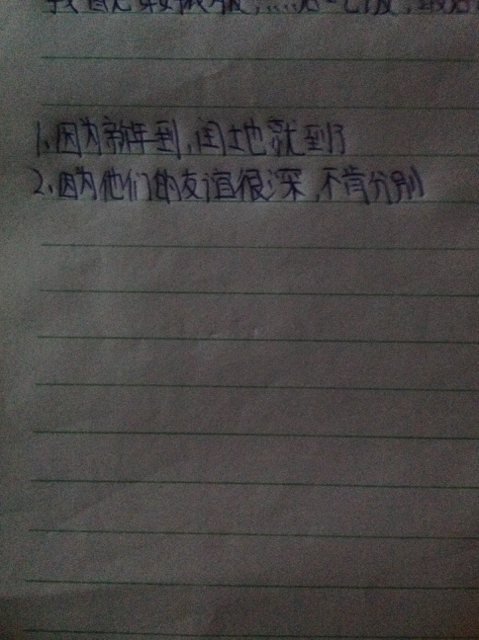 1、因为新年到,闰土也就到了
2、因为他们的友谊很深,不肯分别